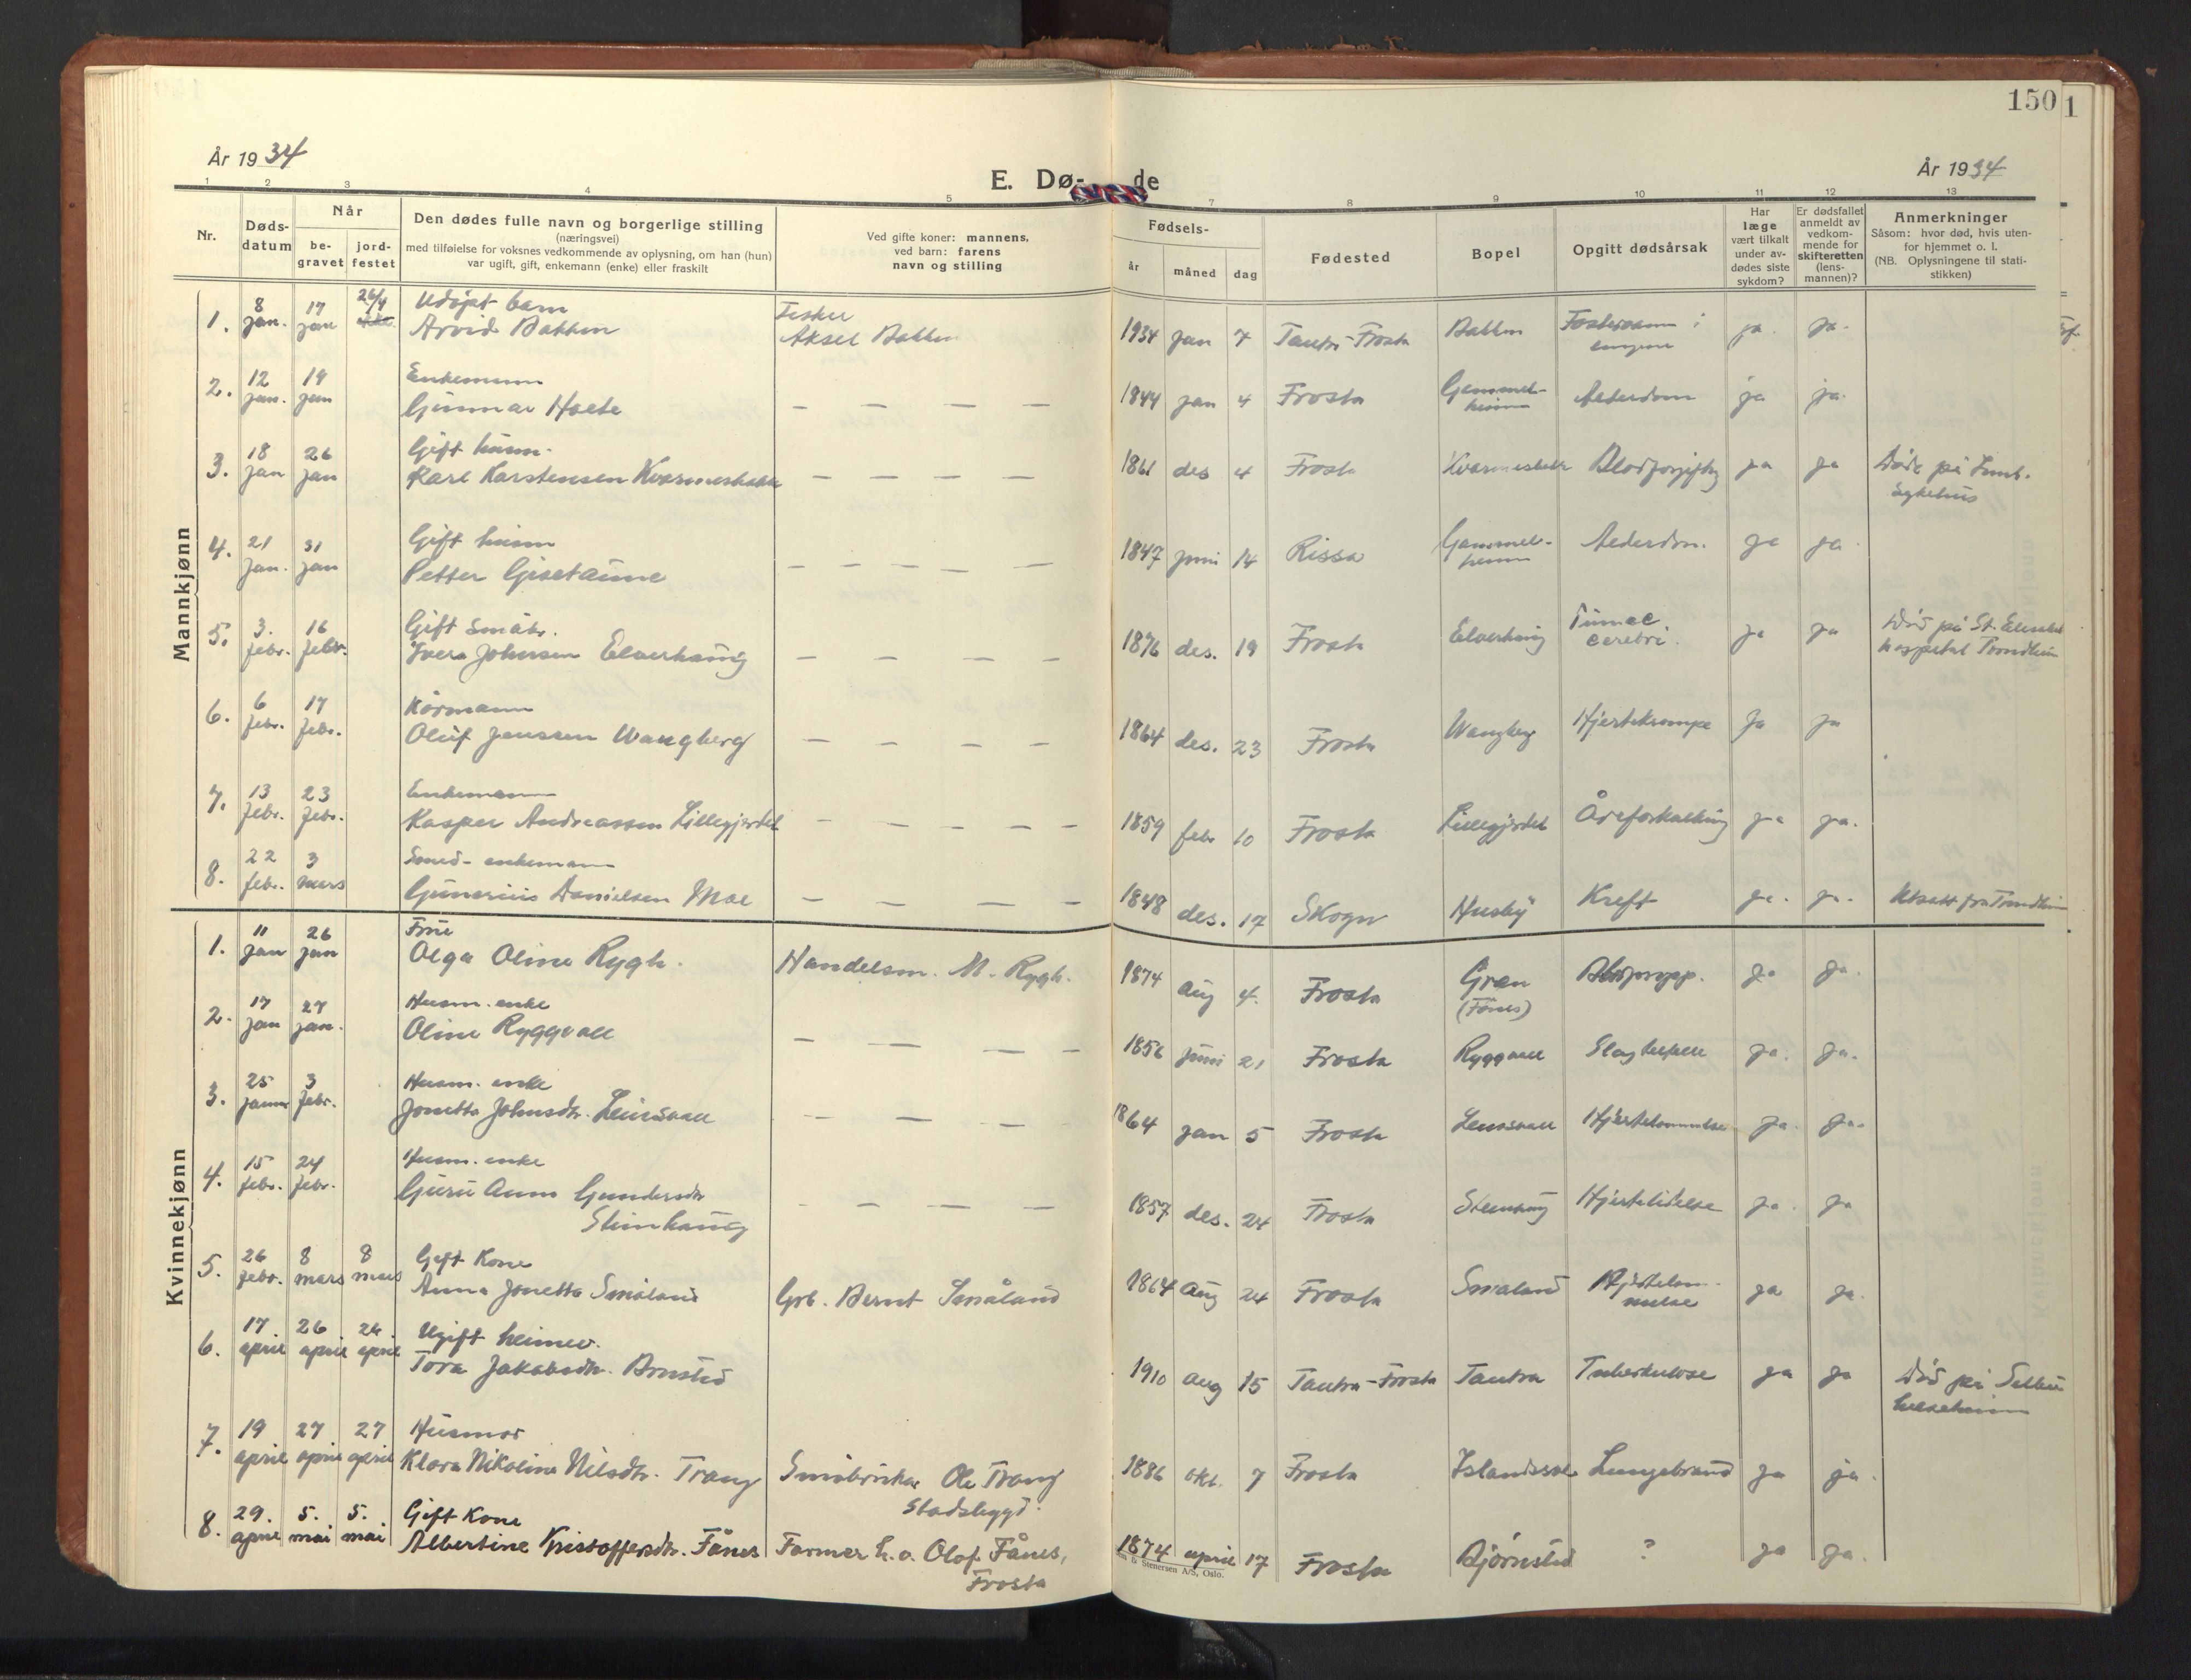 150 1
År 1934
E. Dø- de
År 1934
1 2 3 4 5 7 8 9 10 11 12 13
Nr.
Døds-
datum
Når
be-
gravet
jord-
festet
Den dødes fulle navn og borgerlige stilling
(næringsvei)
med tilføielse for voksnes vedkommende av oplysning, om han (hun)
var ugift, gift, enkemann (enke) eller fraskilt
Ved gifte koner: mannens,
ved barn: farens
navn og stilling
Fødsels-
år måned dag
Fødested
Bopel
Opgitt dødsårsak
Har
læge
vært tilkalt
under av-
dødes siste
sykdom?
Er dødsfallet
anmeldt av
vedkom-
mende for
skifteretten
(lens-
mannen)?
Anmerkninger
Såsom: hvor død, hvis uten-
for hjemmet o. l.
(NB. Oplysningene til stati-
stikken)
Mannkjønn
1. 8 jan. 17 jan 26/4
barn
Arvid Bakken
Fisker
Aksel Bakken
1934 jan 7 Tautra-Frosta Bakken i ja. ja.
2. 12 jan. 19 jan
Enkemann
Gunnar Hoete
— — — —
1844 jan 4 Frosta Gammel-
heim Alderdom ja ja.
3. 18 jan 26 jan
Gift husm.
Karl Karstensen Kvarmesbakk
— — — —
1861 des 4 Frosta Kvarmesbakk Blodforgiftng ja ja Døde på Innh.
sykehus
4. 21 jan. 31 jan
Gift husm
Petter Gisetaune
— — — — —
1847 juni 14 Rissa Gammel-
heim Alderdom. ja ja.
5. 3. febr. 16 febr.
Gift småbr.
Iver Johnsen Elverhaug
— — — —
1876 des. 19 Frosta Elverhaug Tumor
cerebri. ja ja Død på St. Elisabet
hospital Trondheim
6. 6 febr. 17 febr.
Kårmann
Oluf Janssen Wangberg
— — — —
1864 des. 23 Frosta Wangberg Hjertekrampe ja ja
7. 13 febr. 23 febr.
Enkemann
Kasper Andreassen Lillegjerdet
— — — — —
1859 febr 10 Frosta Lillegjerdet Åreforkalkning ja ja.
8. 22 febr. 3 mars
Smed- enkemann
Gunerius Danielsen Moe
— — — —
1848 des. 17 Skogn Husby Kreft ja. ja. fra Trondheim
Kvinnekjønn
1. 11 jan 26 jan
Frue
Olga Oline Rygh.
Handelsm. M. Rygh.
1874 aug 4. Frosta Gran
(Fånes) Blodpropp. ja ja.
2. 17 jan 27 jan.
Husm. enke
Oline Ryggvoll
— — — —
1856 juni 21 Frosta Ryggvoll Slagtilfelle ja. ja.
3. 25 januar 3 febr.
Husm. enke
Jonetta Johnsdtr. Leinsvall
— — — —
1864 jan 5 Frosta Leinsvall Hjertelammelse ja. ja.
4. 15 febr. 24 febr.
Husm. enke
Guru Anna Gundersdtr
Steinhaug
— — — —
1857 des. 24 Frosta Steinhaug Hjertelidelse ja. ja
5. 26 febr. 8 mars 8 mars
Gift Kone
Anna Jonetta Småland
Grb. Bernt Småland
1864 aug 24 Frosta Småland Hjertelam-
melse ja ja.
6. 17. april 26 april 26. april
Ugift heimev.
Tora Jakobsdtr. Arnstad
1910 aug 15 Tautra-Frosta Tautra Tuberkulose ja ja Død på Selbu
helseheim
7. 19 april 27 april 27 april
Husmor
Klara Nikoline Nilsdtr. Trang
Småbruker Ole Trang
Stadsbygd.
1886 okt. 7 Frosta Lungebrand ja ja.
8. 29. april 5. mai 5. mai
Gift Kone
Albertine Kristoffersdtr. Fånes
Farmer h.o. Olof Fånes,
Frosta
1874 april 17 Frosta Bjørnstad ? ja ja.
& Stenersen A/S, Oslo.